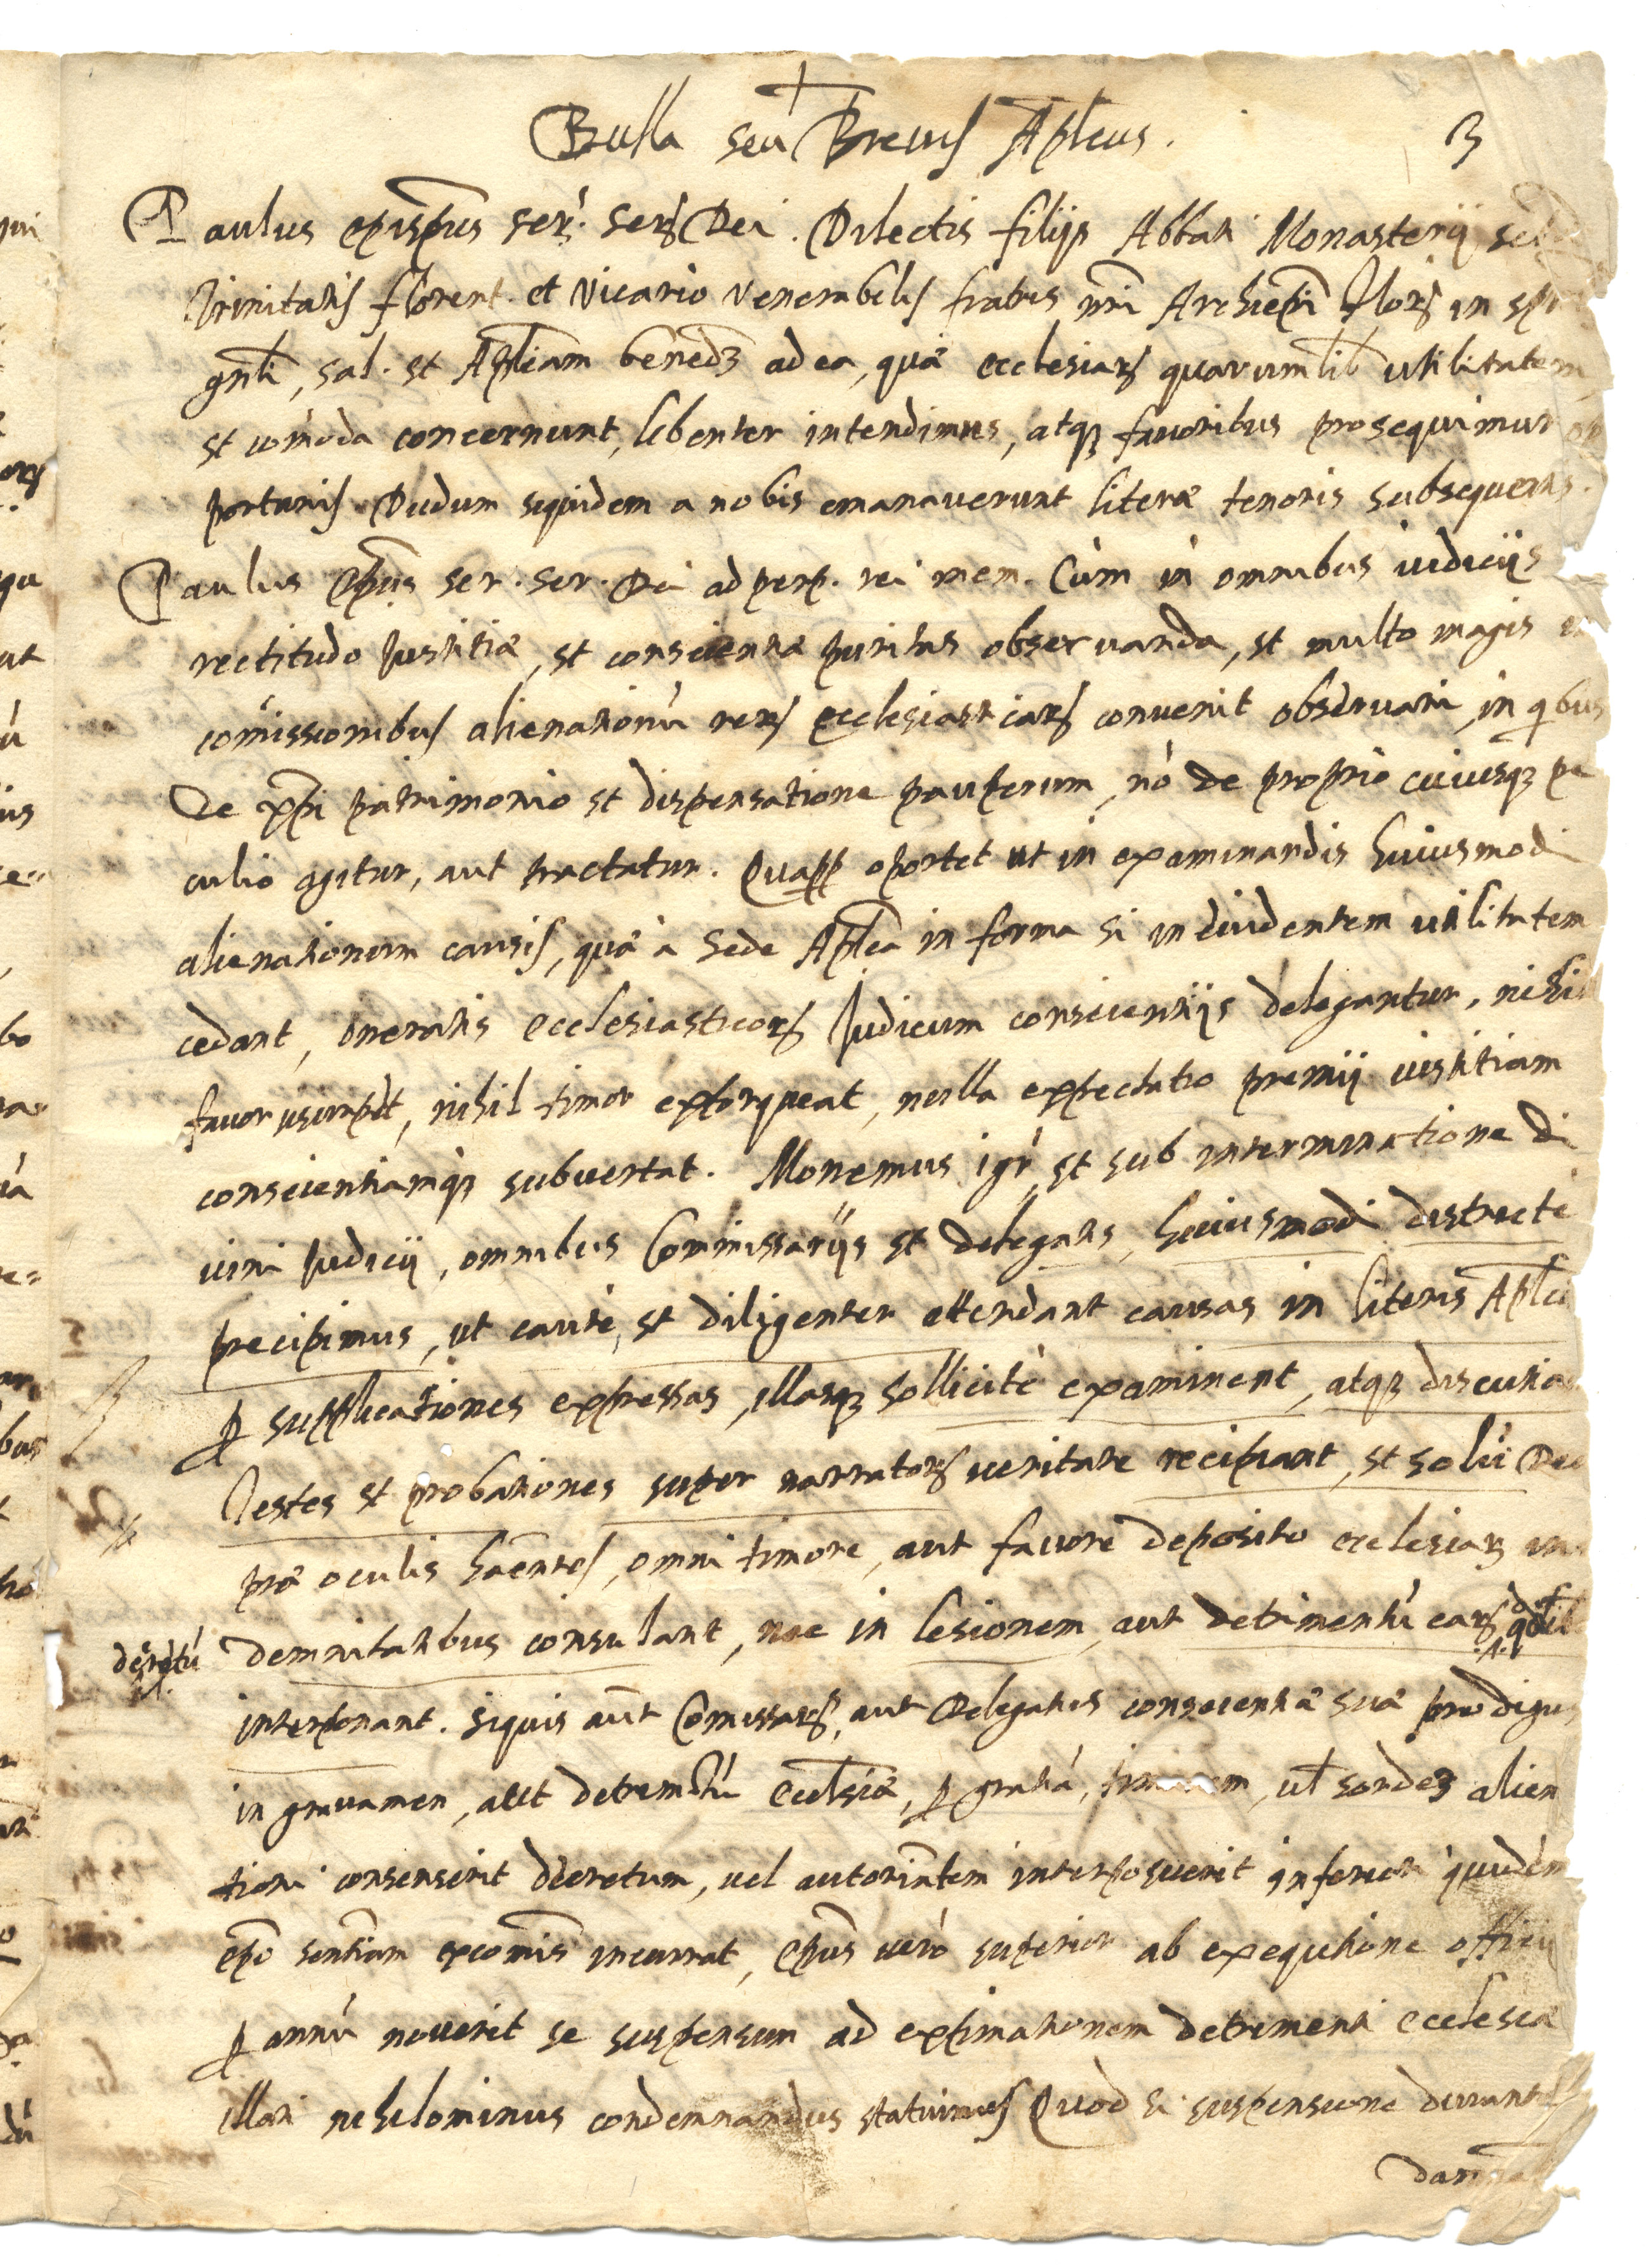 Bulla seu Brevis Aplcus. 3
Paulus epispus ser. serꝝ Dei. Dilectis filijs Abbati Monasterij
Trinitatis florent. et Vicario Venerabilis fratris nri Archiepi florꝝ in
gnli, sal. et Aplicam benedꝫ ad ea, quæ ecclesiarꝝ quarumlib utilitatem
et comoda concernunt, libenter intendimus, atqꝫ favoribus prosequimur op
portunis. Dudum siquidem a nobis emanaverunt literæ tenoris subsequentis.
Paulus Epus ser. ser. Dei ad perp. rei mem. Cùm in omnibus iudicijs
rectitudo Justitiæ, et conscientiæ puritas observanda, et multo magis in
comissionibus alienationù rerꝝ ecclesiasticarꝝ convenit observari, in qbus
De xpi patrimonio et dispensatione pauperum, nò de proprio cuiusqꝫ pe
culio agitur, aut tractatur. Quapp oportet ut in examinandis huiusmodi
alienationum causis, quæ à Sede Aplca in forma si in evidentem utilitatem
cedant, oneratis ecclesiasticorꝝ Judicum conscientijs delegantur, nihil
favor usurpet, nihil timor extorqueat, nulla expectatio premij iustitiam
conscientiamqꝫ subvertat. Monemus igr, et sub interminatione di
vini Judicij, omnibus Commissarijs et delegatis, huiusmodi districte
precipimus, ut cautè, et diligenter attendant causas in literis Aplcis
ꝑ supplicationes expressas, illasqꝫ sollicitè examinent, atqꝫ discutiant
Testes et probationes super narratorꝝ veritate recipiant, et solù Deù
præ oculis haentes, omni timore, aut favore deposito ecclesiarꝝ in
demnitatibus consulant, nec in lesionem, aut detrimentù earꝝ
decretù
interponant. Siquis aut Comissarꝝ, aut Delegatus conscientiæ suæ prodigus
in gravamen, aut detremtù Ecclesiæ, ꝑ gratià, timorem, ul sordes aliena
tioni consenserit decretum, uel autoritatem interposuerit inferior quidem
epo sentiam excomis incurrat, epus uerò superior ab exequtione officij
ꝑ annù noverit se suspensum ad extimationem detrimenti ecclesiæ
illati nihilominus condemnandus statuimus Quod si suspensione durante